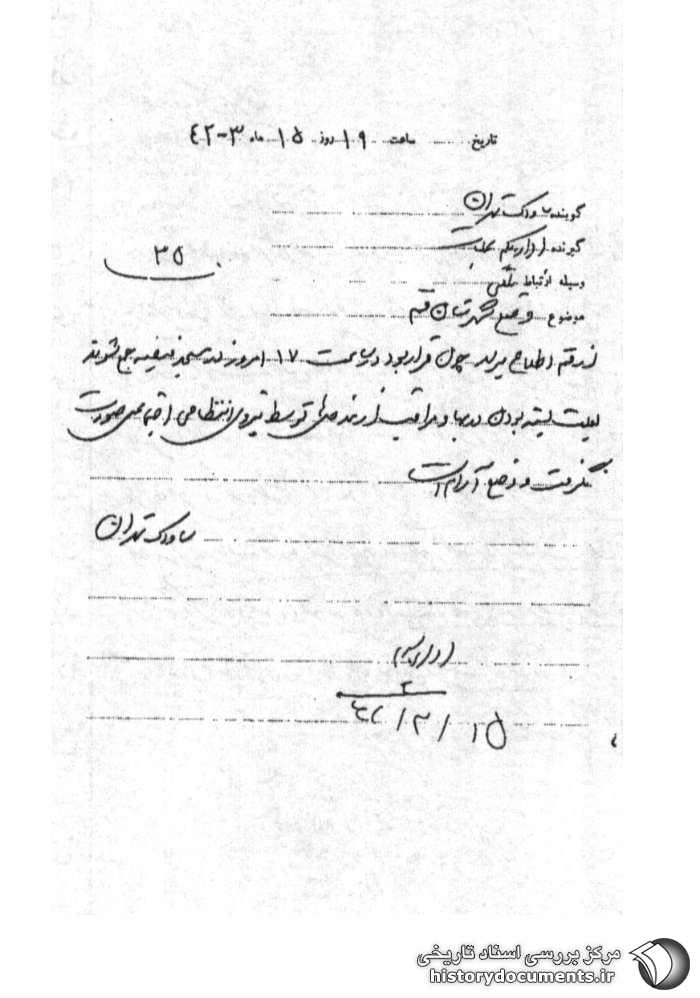 تاریخ ........ ساعت ۱۹ روز ۱۵ ماه ۳-۴۲
گوینده ساواک تهران
گیرنده اداره یکم
۳۵
وسیله ارتباط تلفنی
موضوع وضع شهرستان قم
از قم اطلاع میدهد چون قرار بود در ساعت ۱۷ امروز در مسجد فیضیه جمع شوند
بعلت بسته بودن دربها و مراقبت از رفت توسط نیروی انتظامی اجتماعی صورت
نگرفت و وضع آرام است
ساواک تهران
۲
۱۵/۳/۴۲
مرکز بررسی اسناد تاریخی
historydocuments.ir